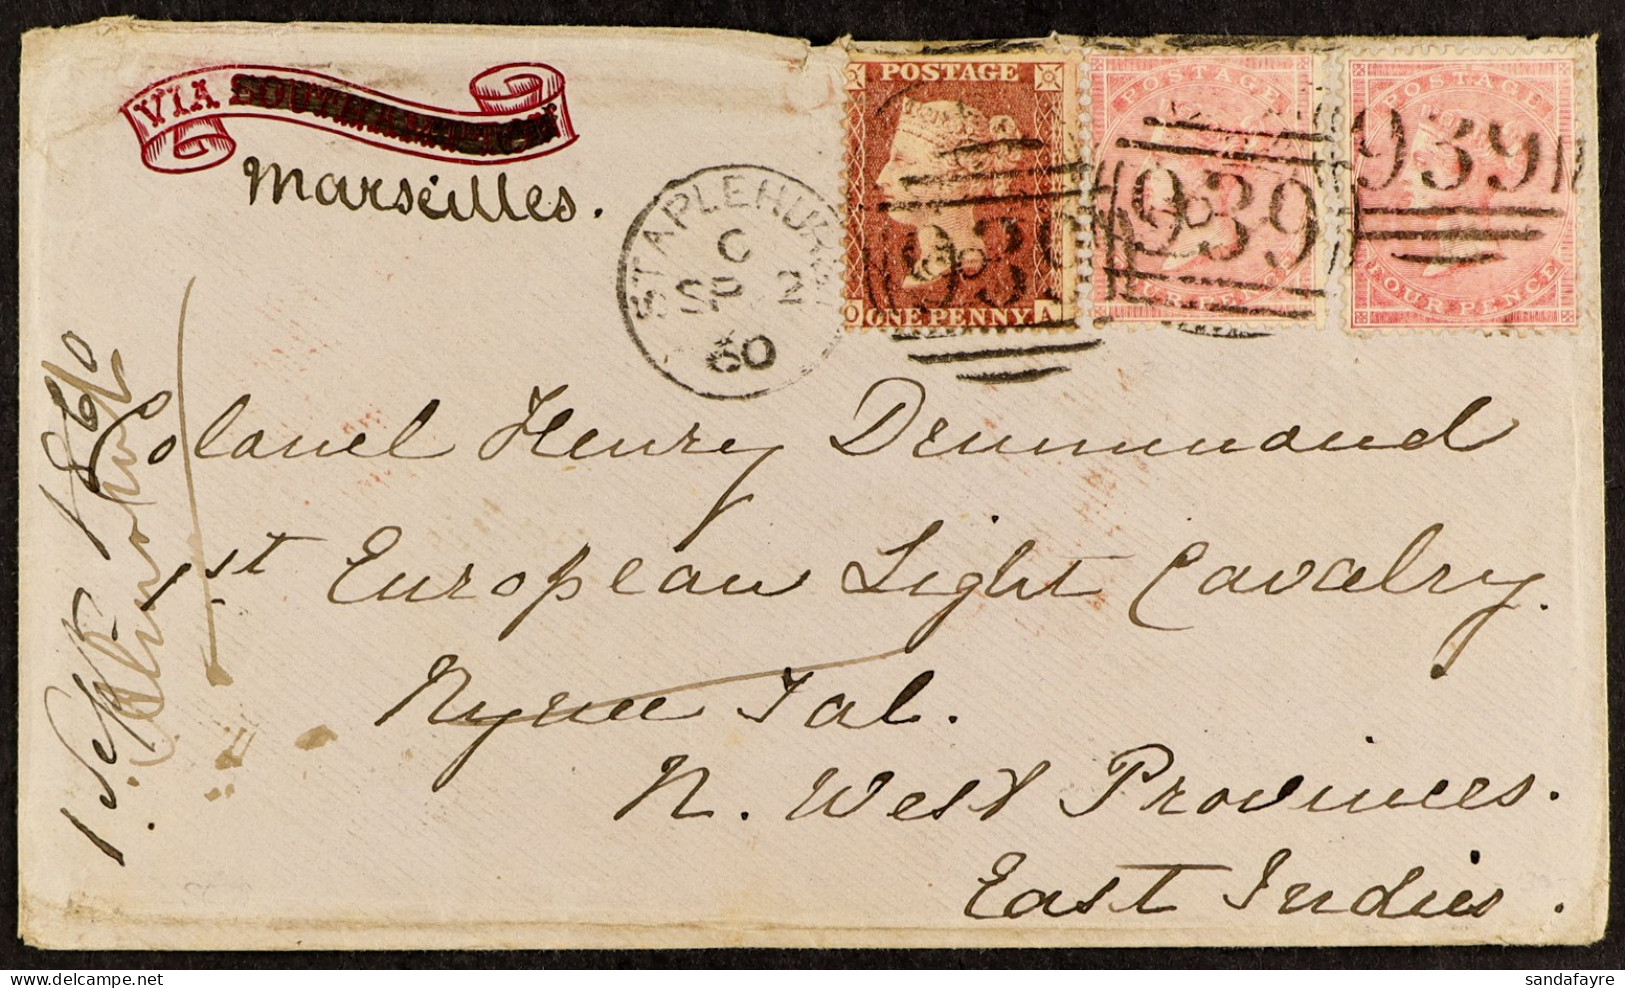 VIA SOUTHAMPTON
Marseilles.
STAPLEHURST
C
SP 2
60
POSTAGE
O ONE PENNY A
939
POSTAGE
FOUR PENCE
939
POSTAGE
FOUR PENCE
939
Colonel Henry Drummond
1st European Light Cavalry.
Nynee Tal.
N. West Provinces.
East Indies.
1 Sept. 1860
sandafayre